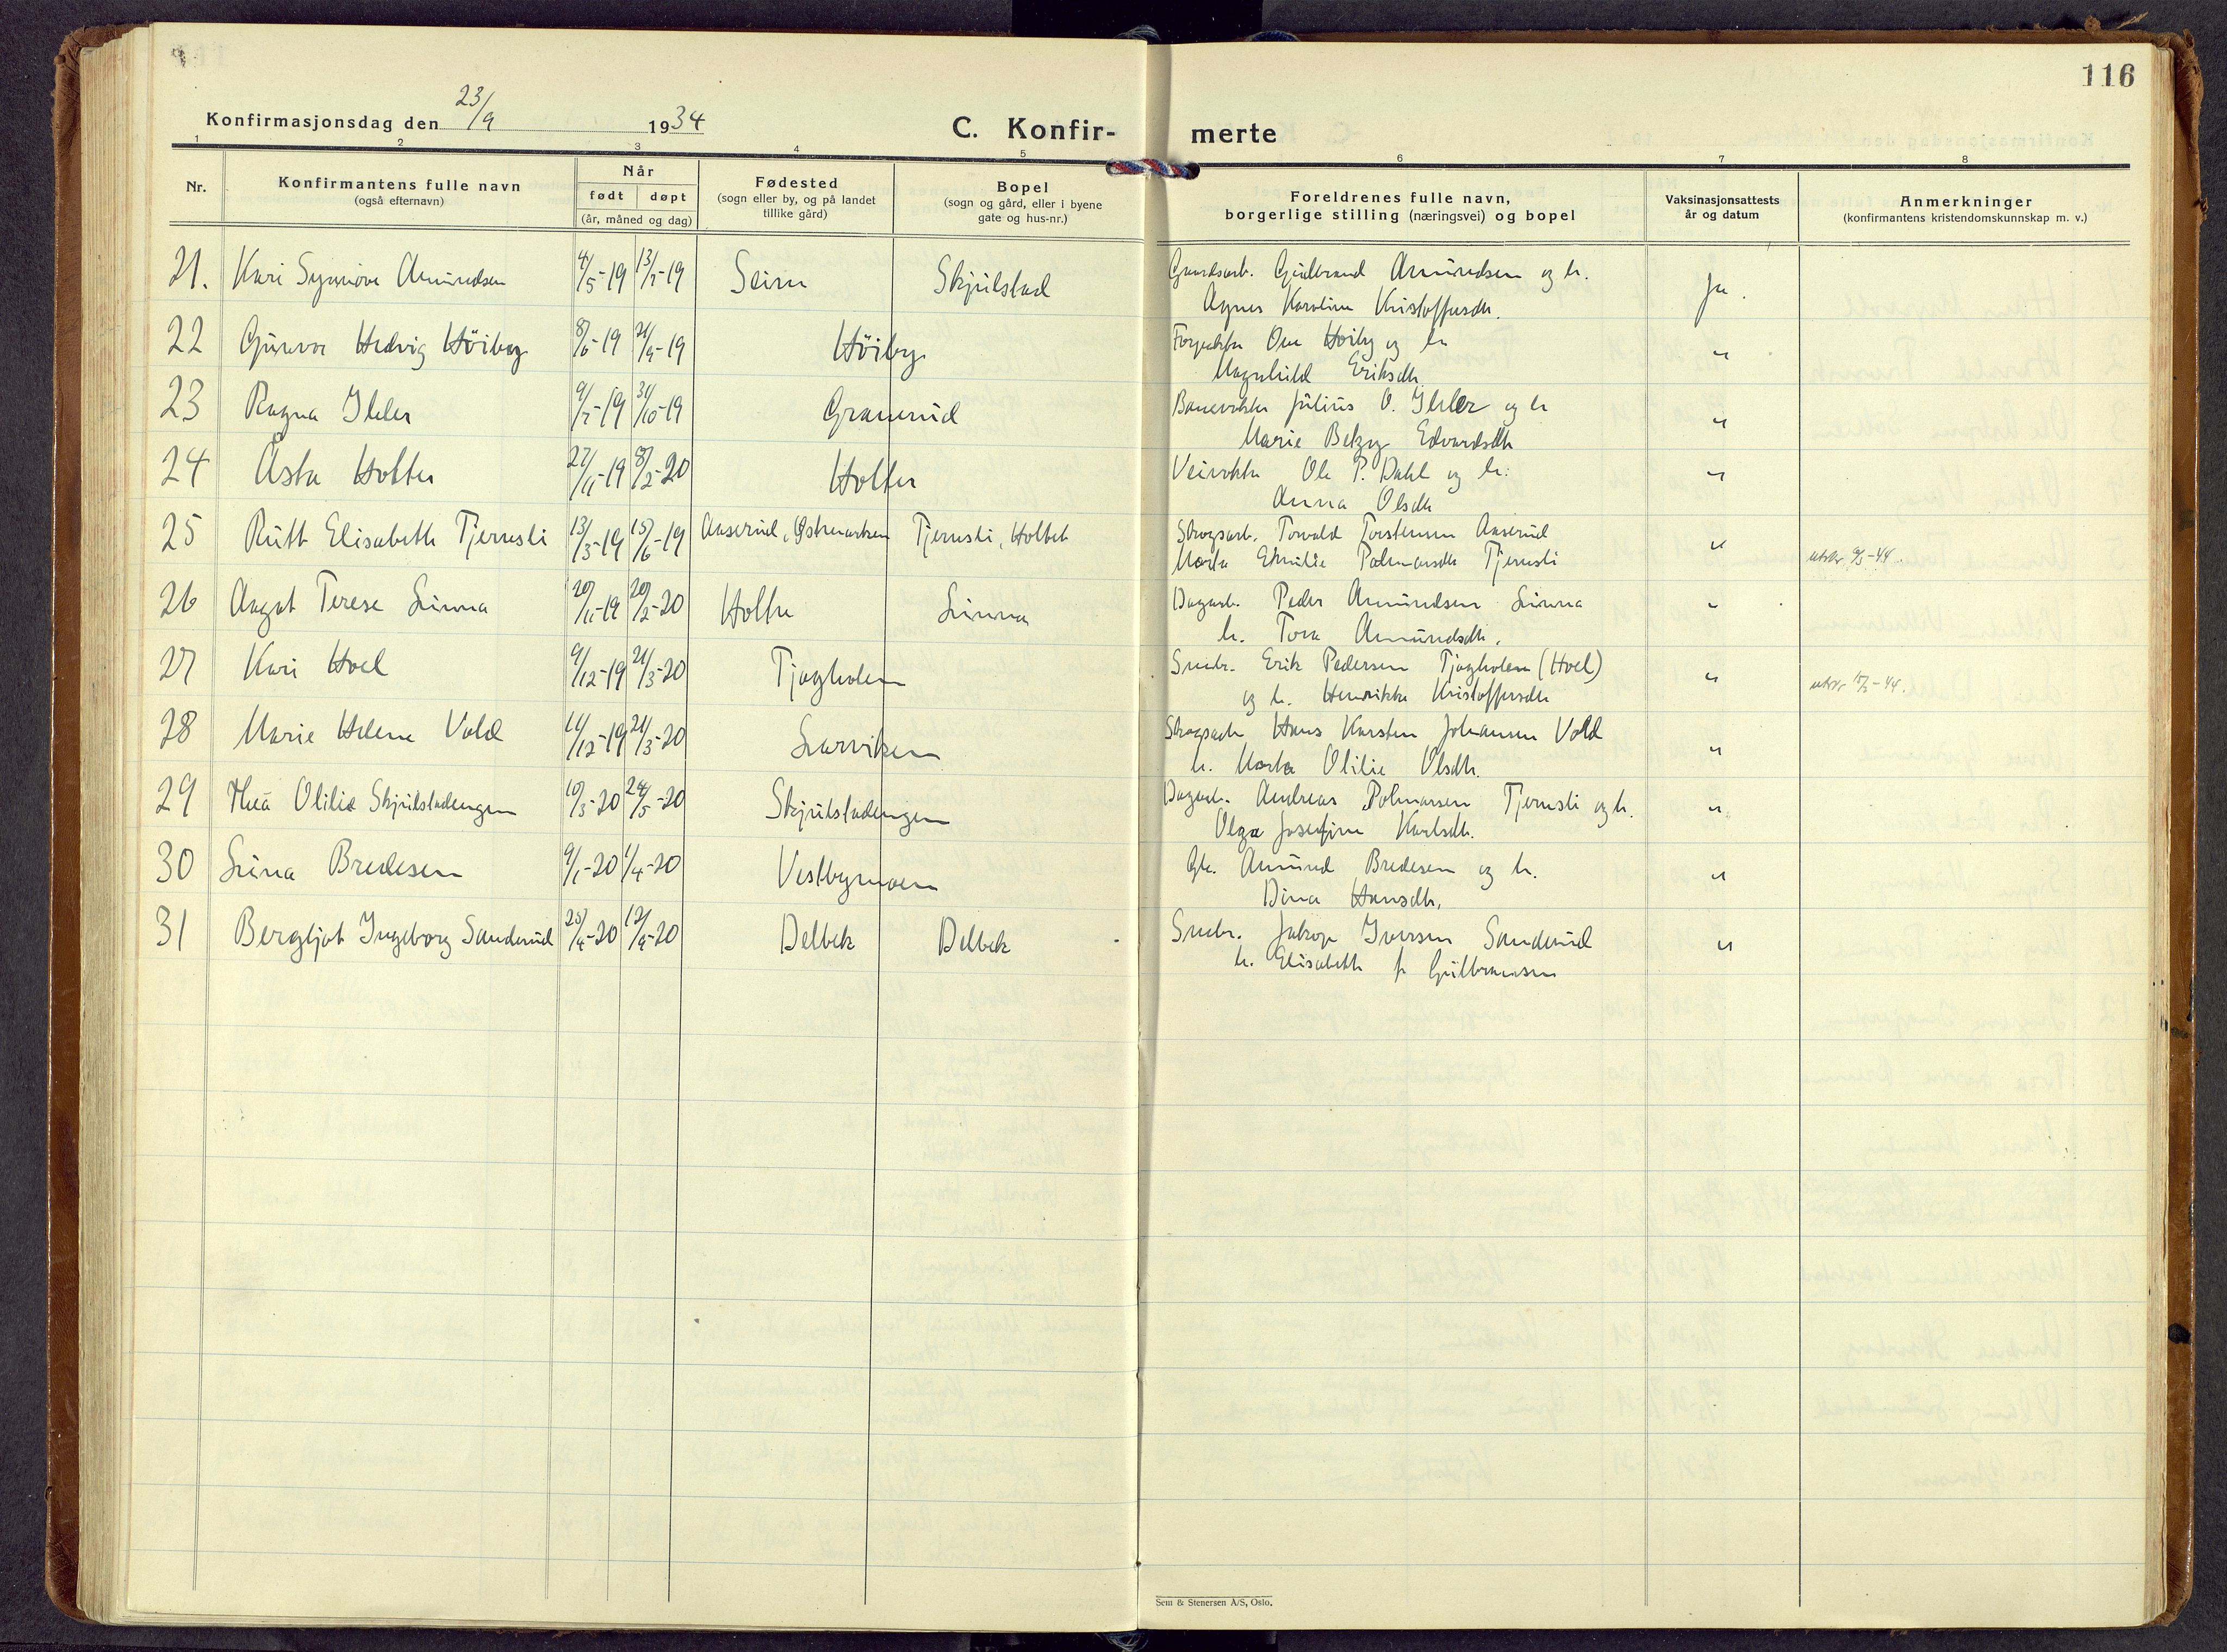 116
Konfirmasjonsdag den 23/9 1934
C. Konfir- merte
1 2 3 4 5 6 7 8
Nr.
Konfirmantens fulle navn
(også efternavn)
Når
født døpt
(år, måned og dag)
Fødested
(sogn eller by, og på landet
tillike gård)
Bopel
(sogn og gård, eller i byene
gate og hus-nr.)
Foreldrenes fulle navn,
borgerlige stilling (næringsvei) og bopel
Vaksinasjonsattests
år og datum
Anmerkninger
(konfirmantens kristendomskunnskap m. v.)
21. Kari Synnöve Amundsen 4/5-19 13/7-19 Seim Skjulstad Gaardsarb. Gudbrand Amundsen og h. Ja.
Agnes Karoline Kristoffersdh.
22 Gunvor Hedvig Höiby 8/6-19 21/9-19 Höiby Ove Höiby og h "
Magnhild Eriksdh
23 Ragna Ihler 9/7-19 31/10-19 Granerud Banevokter Julius O. Ihler og h "
Marie Betzy Edvardsdh
24 Åsta Holter 27/11-19 8/2-20 Holter Veivokter Ole P. Dahl og h. "
Anna Olsdh
25 Rutt Elisabeth Tjernsli 13/3-19 15/6-19 Aaserud, Østmarken Tjernsli, Holtet Skogsarb. Torvald Torstensen Aaserud
Marta Emilie Palmarsdh Tjernsli " utskr 9/3-44.
26 Aagot Terese Linna 20/11-19 20/2-20 Holter Linna Dagarb. Peder Amundsen Linna "
h. Tora Amundsdh.
27 Kari Hoel 9/12-19 21/3-20 Tjagholen Smbr. Erik Pedersen Tjagholen (Hoel) "
og h. Henrikke Kristoffersdh utskr 15/3-44.
28 Marie Helene Vold 11/12-19 21/3-20 Larviken Skogsarb Hans Karsten Johansen Vold
h. Marta Olilie Olsdh. "
29 Thea Olilie Skjulstadengen 10/3-20 24/5-20 Skjulstadengen Dagarb. Andreas Palmarsen Tjernsli og h. "
Olga Josefine Karlsdh.
30 Lina Bredesen 9/1-20 1/4-20 Vestbymoen Gbr. Amund Bredesen og h. "
Dina Hansdh.
31 Bergljot Ingeborg Sanderud 25/4-20 12/9-20 Delbek Delbek Smbr. Jakop Iversen Sanderud "
h. Elisabeth f. Gulbransen
Sem & Stenersen A/S, Oslo.